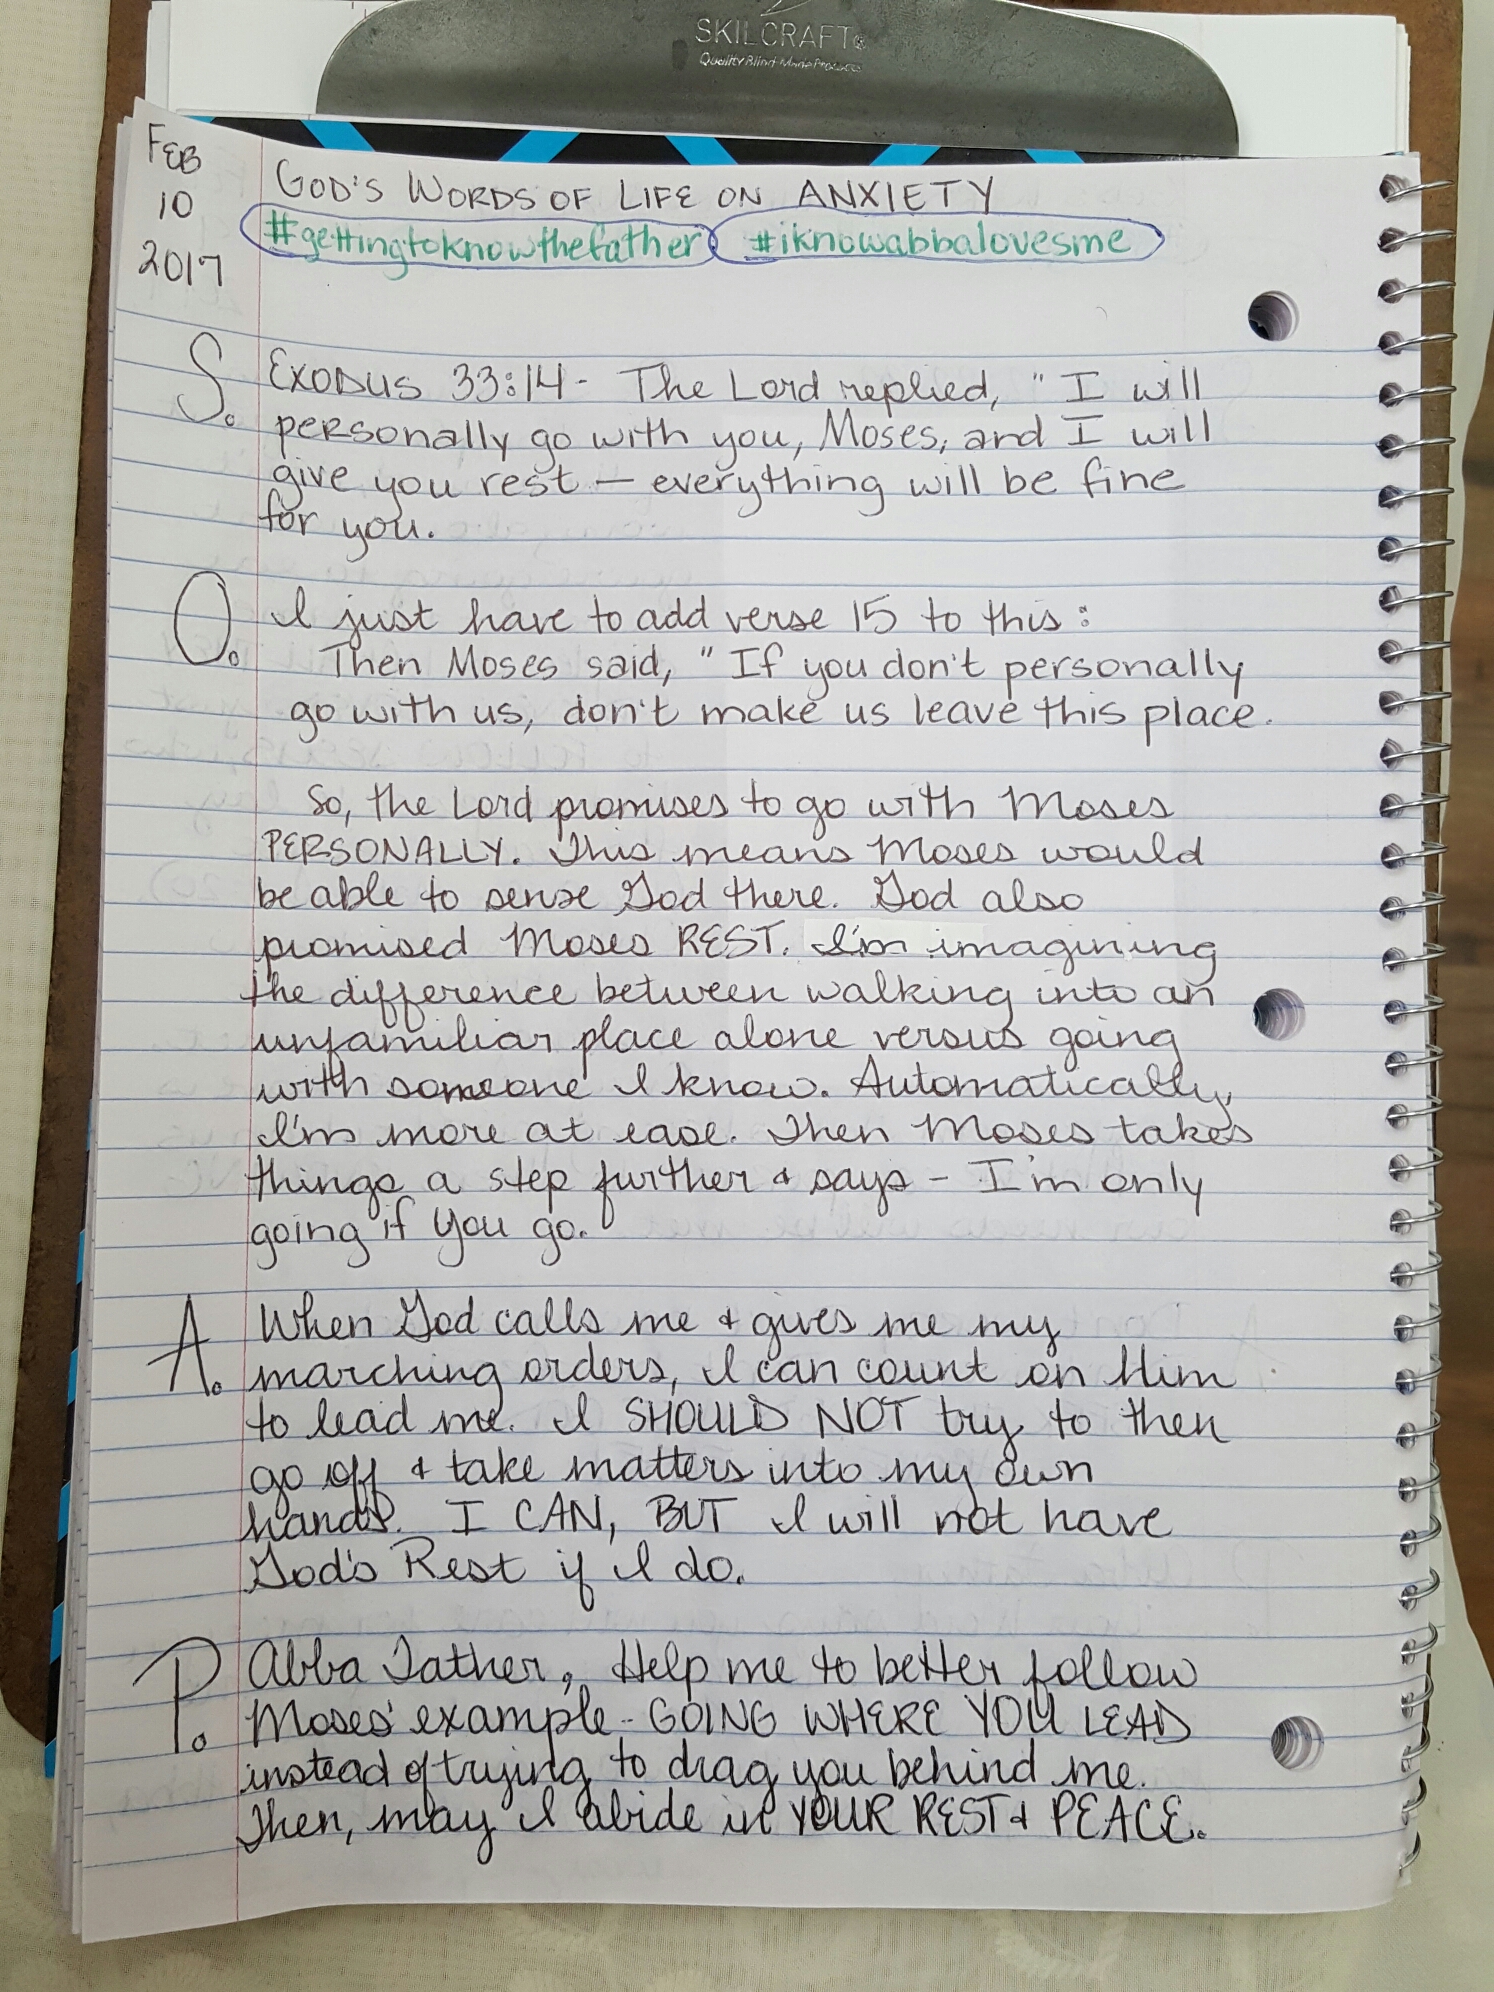 SKILCRAFT®
Quality Blind-Made Products
FEB
10
2017
GOD'S WORDS OF LIFE ON ANXIETY
#gettingtoknowthefather #iknowabbalovesme
S. EXODUS 33:14 - The Lord replied, "I will
personally go with you, Moses, and I will
give you rest — everything will be fine
for you.
O. I just have to add verse 15 to this:
Then Moses said, "If you don't personally
go with us, don't make us leave this place.
So, the Lord promises to go with Moses
PERSONALLY. This means Moses would
be able to sense God there. God also
promised Moses REST. I'm imagining
the difference between walking into an
unfamiliar place alone versus going
with someone I know. Automatically,
I'm more at ease. Then Moses takes
things a step further & says - I'm only
going if You go.
A. When God calls me & gives me my
marching orders, I can count on Him
to lead me. I SHOULD NOT try to then
go off & take matters into my own
hands. I CAN, BUT I will not have
God's Rest if I do.
P. Abba Father, Help me to better follow
Moses' example - GOING WHERE YOU LEAD
instead of trying to drag you behind me.
Then, may I abide in YOUR REST & PEACE.